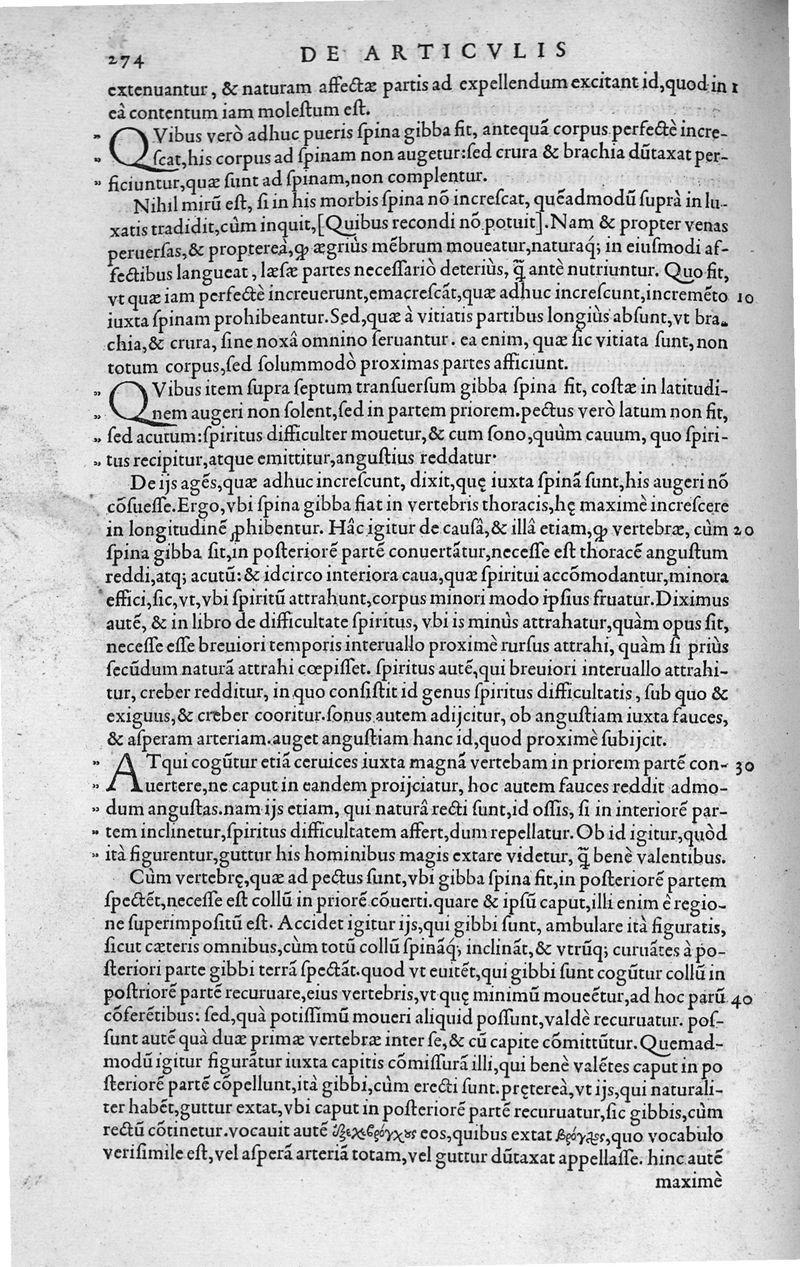 274 DE ARTICVLIS
extenuantur, & naturam affectæ partis ad expellendum excitant id, quod in 1
eâ contentum iam molestum est.
" QVibus verò adhuc pueris spina gibba fit, antequã corpus perfectè incre-
" scat, his corpus ad spinam non augetur: sed crura & brachia dũtaxat per-
" ficiuntur, quæ sunt ad spinam, non complentur.
Nihil mirũ est, si in his morbis spina nõ increscat, quẽadmodũ suprà in lu-
xatis tradidit, cùm inquit, [Quibus recondi nõ potuit]. Nam & propter venas
peruersas, & proptereà, ꝙ ægriùs mẽbrum moueatur, naturaq́; in eiusmodi af-
fectibus langueat, læsæ partes necessariò deteriùs, q̃ antè nutriuntur. Quo fit,
vt quæ iam perfectè increuerunt, emacrescãt, quæ adhuc increscunt, incremẽto 10
iuxta spinam prohibeantur. Sed, quæ à vitiatis partibus longiùs absunt, vt bra-
chia, & crura, sine noxâ omnino seruantur. ea enim, quæ sic vitiata sunt, non
totum corpus, sed solummodò proximas partes afficiunt.
" QVibus item supra septum transuersum gibba spina fit, costæ in latitudi-
" nem augeri non solent, sed in partem priorem. pectus verò latum non fit,
" sed acutum: spiritus difficulter mouetur, & cum sono, quùm cauum, quo spiri-
" tus recipitur, atque emittitur, angustius reddatur.
De ijs agẽs, quæ adhuc increscunt, dixit, quę iuxta spinã sunt, his augeri nõ
cõsuesse. Ergo, vbi spina gibba fiat in vertebris thoracis, hę maximè increscere
in longitudinẽ ꝓhibentur. Hâc igitur de causâ, & illâ etiam, ꝙ vertebræ, cùm 20
spina gibba fit, in posteriorẽ partẽ conuertãtur, necesse est thoracẽ angustum
reddi, atq; acutũ: & idcirco interiora caua, quæ spiritui accõmodantur, minora
effici, sic, vt, vbi spiritũ attrahunt, corpus minori modo ipsius fruatur. Diximus
autẽ, & in libro de difficultate spiritus, vbi is minùs attrahatur, quàm opus sit,
necesse esse breuiori temporis interuallo proximè rursus attrahi, quàm si priùs
secũdum naturã attrahi cœpisset. spiritus autẽ, qui breuiori interuallo attrahi-
tur, creber redditur, in quo consistit id genus spiritus difficultatis, sub quo &
exiguus, & creber cooritur. sonus autem adijcitur, ob angustiam iuxta fauces,
& asperam arteriam. auget angustiam hanc id, quod proximè subijcit.
" ATqui cogũtur etiã ceruices iuxta magnã vertebam in priorem partẽ con- 30
" uertere, ne caput in eandem proijciatur, hoc autem fauces reddit admo-
" dum angustas. nam ijs etiam, qui naturâ recti sunt, id ossis, si in interiorẽ par-
" tem inclinetur, spiritus difficultatem affert, dum repellatur. Ob id igitur, quòd
" ità figurentur, guttur his hominibus magis extare videtur, q̃ benè valentibus.
Cùm vertebrę, quæ ad pectus sunt, vbi gibba spina fit, in posteriorẽ partem
spectẽt, necesse est collũ in priorẽ cõuerti. quare & ipsũ caput, illi enim è regio-
ne superimpositũ est. Accidet igitur ijs, qui gibbi sunt, ambulare ità figuratis,
sicut cæteris omnibus, cùm totũ collũ spinãq́; inclinãt, & vtrũq; curuãtes à po-
steriori parte gibbi terrã spectãt. quod vt euitẽt, qui gibbi sunt cogũtur collũ in
postriorẽ partẽ recuruare, eius vertebris, vt quę minimũ mouẽtur, ad hoc parũ 40
cõferẽtibus: sed, quà potissimũ moueri aliquid possunt, valdè recuruatur. pos-
sunt autẽ quà duæ primæ vertebræ inter se, & cũ capite cõmittũtur. Quemad-
modũ igitur figurãtur iuxta capitis cõmissurã illi, qui benè valẽtes caput in po
steriorẽ partẽ cõpellunt, ità gibbi, cùm erecti sunt. pręterea, vt ijs, qui naturali-
ter habẽt, guttur extat, vbi caput in posteriorẽ partẽ recuruatur, sic gibbis, cùm
rectũ cõtinetur. vocauit autẽ ἐξεχεβρόγχους eos, quibus extat βρόγχος, quo vocabulo
verisimile est, vel asperã arteriã totam, vel guttur dũtaxat appellasse. hinc autẽ
maximè